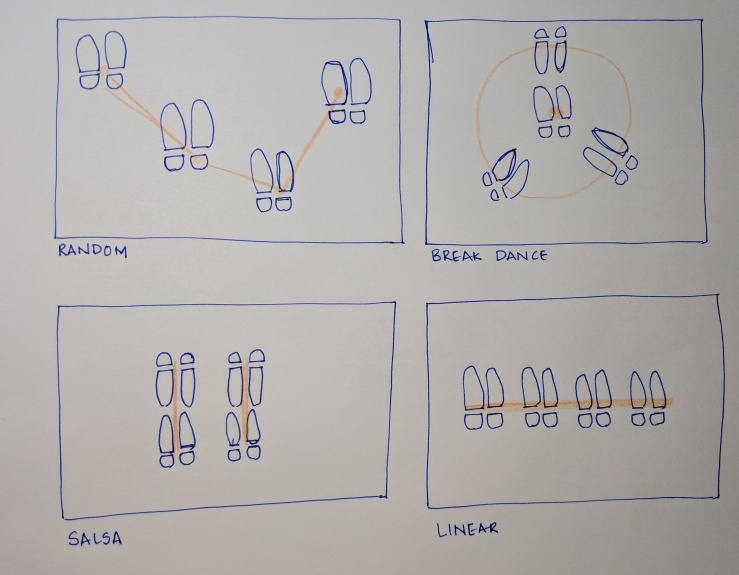 RANDOM
BREAK DANCE
SALSA
LINEAR